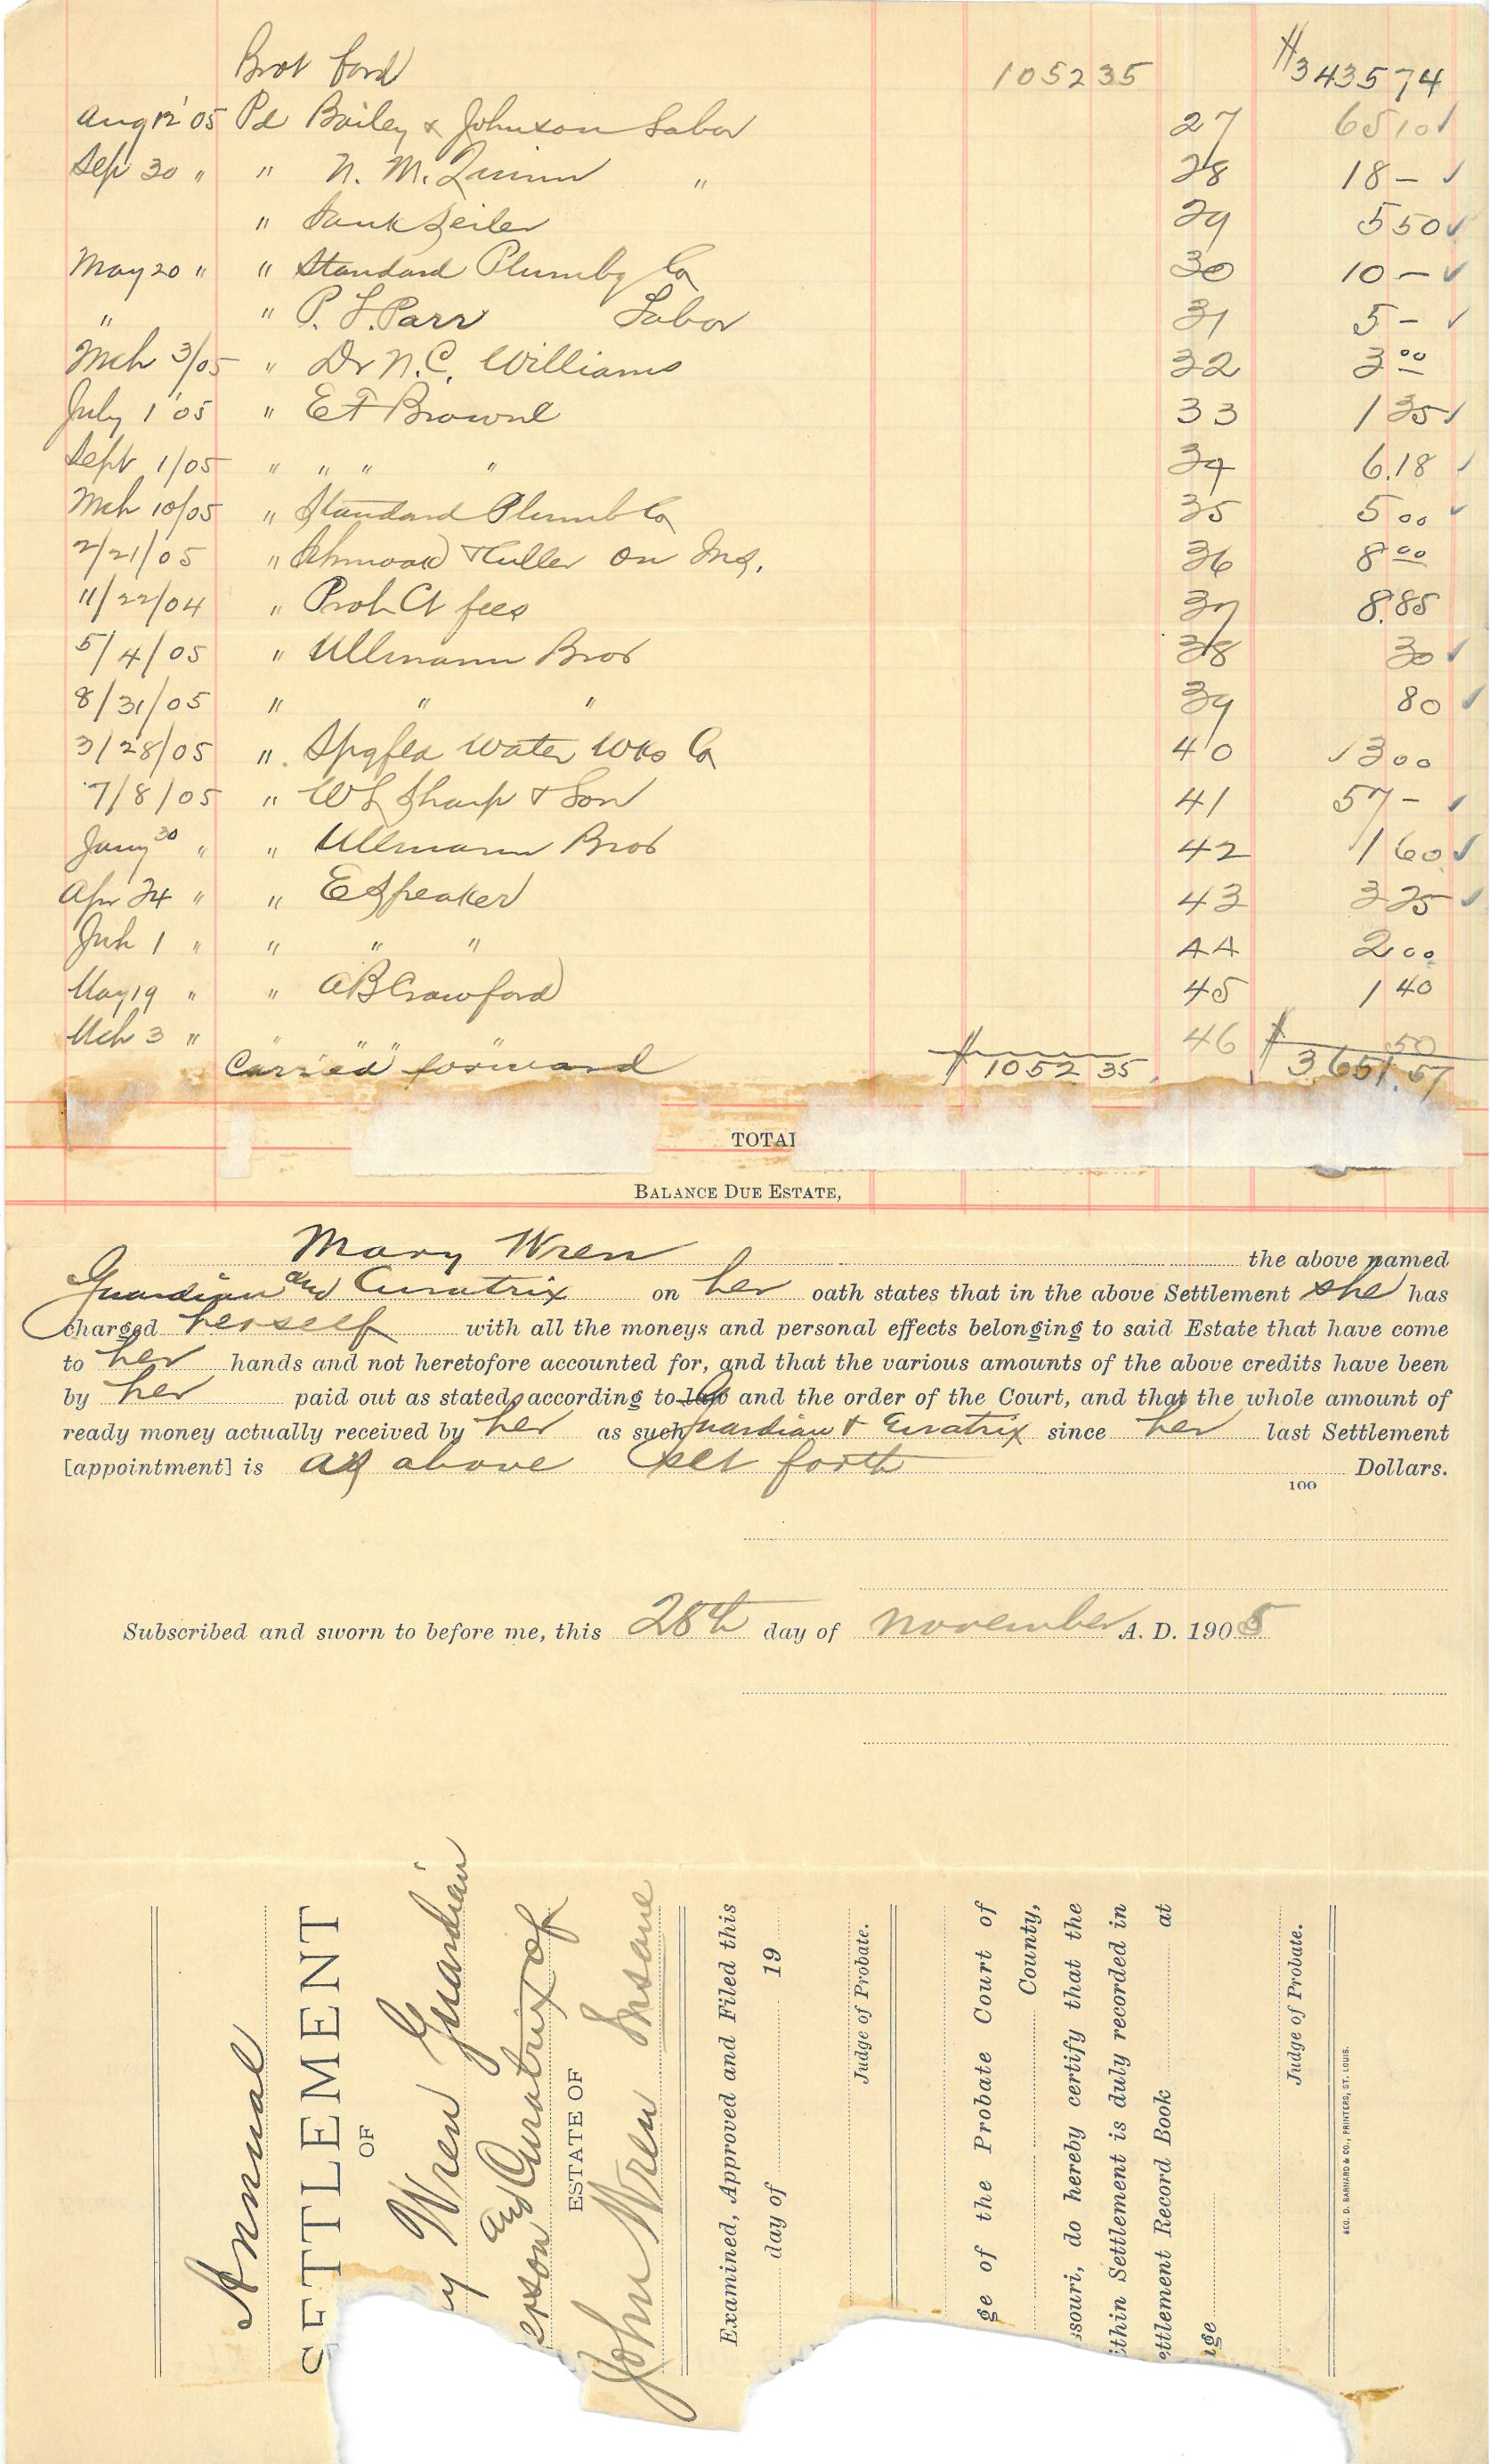 Brot ford 1052 35 $3435 74
Aug 12 '05 Pd Bailey & Johnson Labor 27 65 10 ✓
Sep 30 " " N. M. Quinn " 28 18 – ✓
" Hank Seiler 29 5 50 ✓
May 20 " " Standard Plumbg Co 30 10 – ✓
" " P. L. Parr Labor 31 5 – ✓
Mch 3/05 " Dr N. C. Williams 32 3 00
July 1 '05 " E F Browne 33 1 35 ✓
Sept 1/05 " " " " 34 6.18 ✓
Mch 10/05 " Standard Plumb Co 35 5 00 ✓
2/21/05 " & Culler on Ins. 36 8 00
11/22/04 " Prob Ct fees 37 8.85
5/4/05 " Ullmann Bros 38 30 ✓
8/31/05 " " " 39 80 ✓
3/28/05 " Spgfld Water Wks Co 40 13 00
7/8/05 " W L Sharp & Son 41 57 – ✓
Jany 30 " " Ullmann Bros 42 1 60 ✓
Apr 24 " " E Speaker 43 3 25 ✓
1 " " " " 44 2 00
May 19 " " A B Crawford 45 1 40
Mch 3 " " " " " 46 50
Carried forward $1052 35 $3,651.57
TOTAL
BALANCE DUE ESTATE,
Mary Wren the above named
Guardian and Curatrix on her oath states that in the above Settlement she has
charged herself with all the moneys and personal effects belonging to said Estate that have come
to her hands and not heretofore accounted for, and that the various amounts of the above credits have been
by her paid out as stated, according to law and the order of the Court, and that the whole amount of
ready money actually received by her as such Guardian & Curatrix since her last Settlement
[appointment] is as above set forth Dollars.
100
Subscribed and sworn to before me, this 28th day of November A. D. 1905
Annual
SETTLEMENT
OF
y Wren Guardian
erson and Curatrix of
ESTATE OF
John Wren Insane
Examined, Approved and Filed this
day of 19
Judge of Probate.
ge of the Probate Court of
County,
ssouri, do hereby certify that the
ithin Settlement is duly recorded in
ettlement Record Book at
age
Judge of Probate.
GEO. D. BARNARD & CO., PRINTERS, ST. LOUIS.